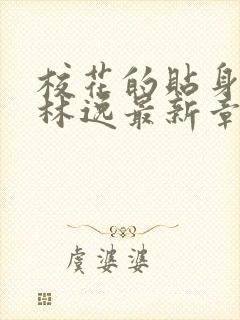 校花的贴身
林逸最新章
虞婆婆